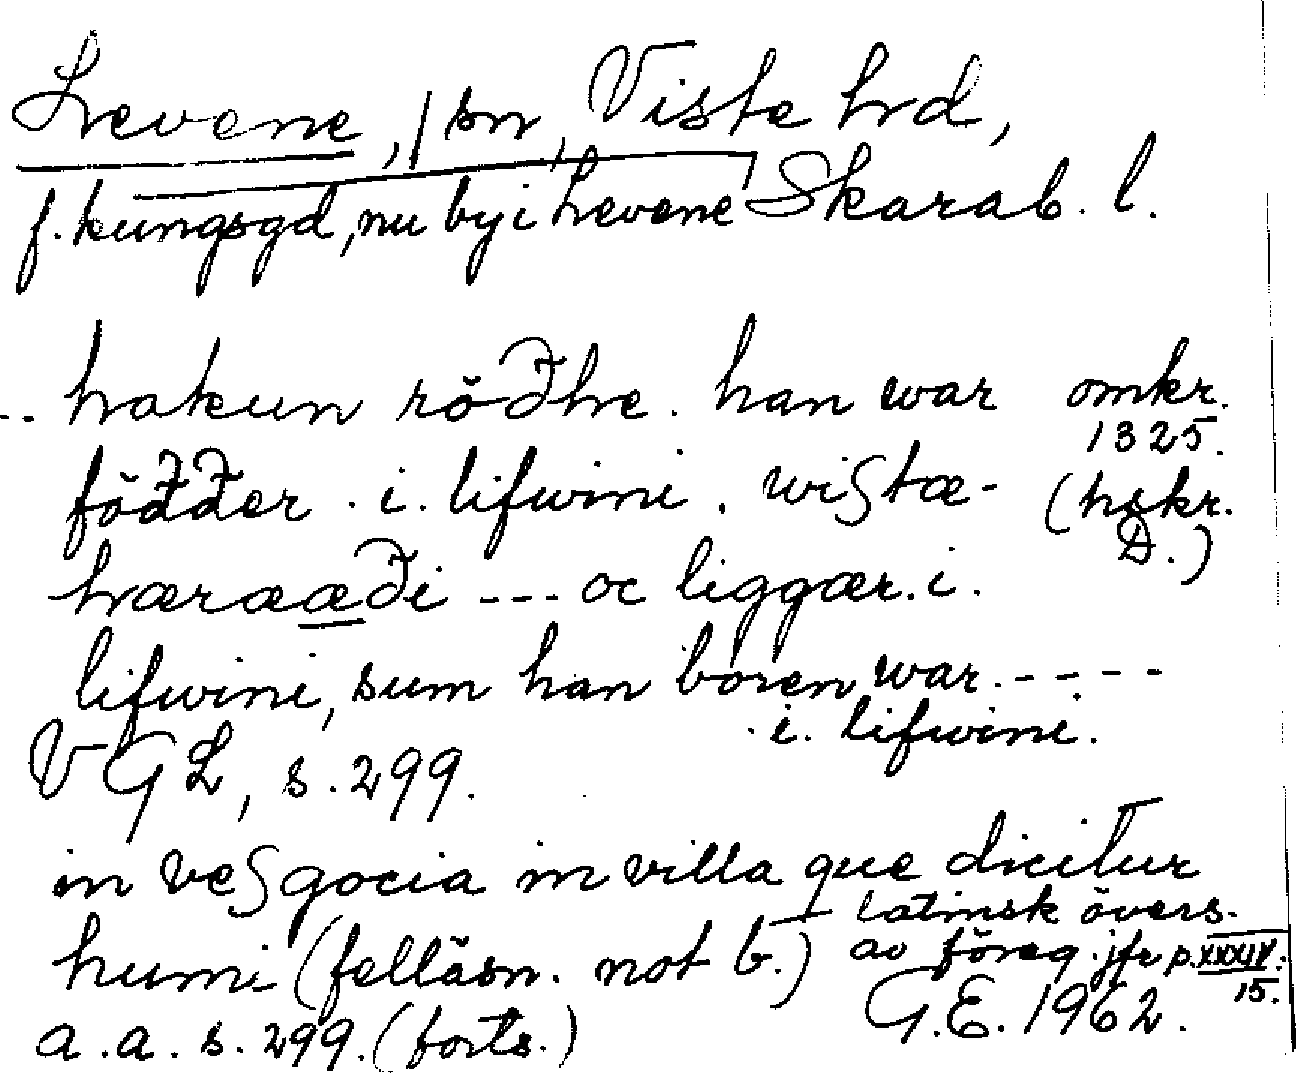 Levene, sn, Viste hd,
f. kungsgd, nu by i Levene, Skarab. l.
.. hakun röđhe. han war omkr.
1325.
föđđer . i. lifwini . wistæ- (hskr.
D.)
hæraæđi --- oc liggær. i.
lifwini, sum han boren war. ----
. i. lifwini.
VGL, s. 299.
in vesgocia in villa que dicitur
humi (felläsn. not b.) – latinsk övers.
av föreg. jfr p. XXXIV:
15.
a. a. s. 299. (forts.) G.E. 1962.